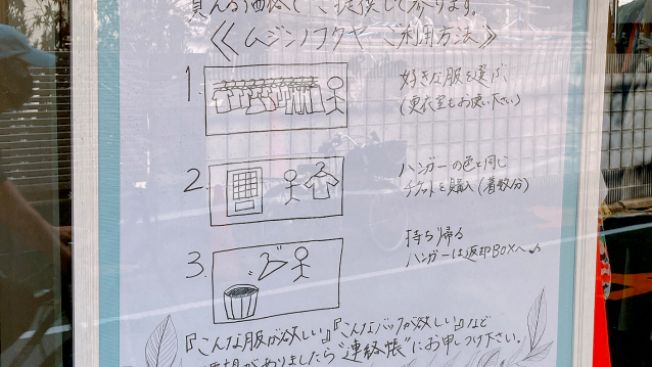 買える価格でご提供しております。
《ムジンノフクヤ ご利用方法》
1.
好きな服を選ぶ、
(更衣室もお使い下さい)
2.
ハンガーの色と同じ
チケットを購入(着数分)
3.
持ち帰る
ハンガーは返却BOXへ♪
『こんな服が欲しい』『こんなバッグが欲しい』など
がありましたら"連絡帳"にお申しつけ下さい。